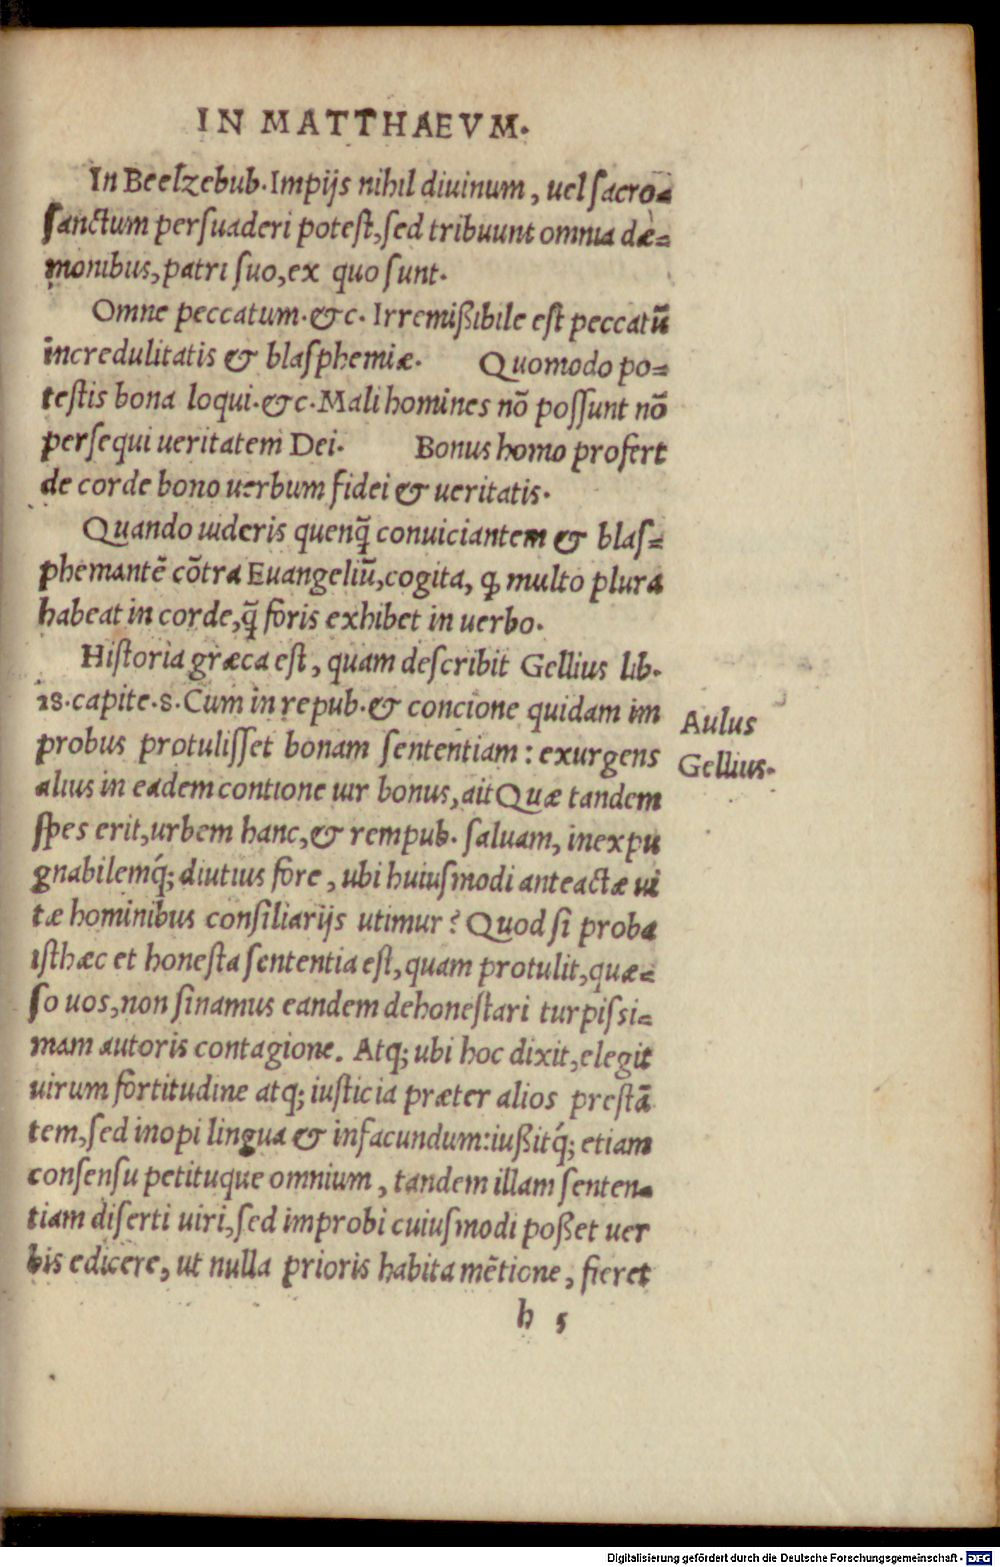 IN MATTHAEVM.
In Beelzebub. Impijs nihil diuinum, uel sacro-
sanctum persuaderi potest, sed tribuunt omnia dæ-
monibus, patri suo, ex quo sunt.
Omne peccatum. &c. Irremißibile est peccatū
incredulitatis & blasphemiæ. Quomodo po-
testis bona loqui. &c. Mali homines nō possunt nō
persequi ueritatem Dei. Bonus homo profert
de corde bono uerbum fidei & ueritatis.
Quando uideris quenq̃ conuiciantem & blas-
phemantē cōtra Euangeliū, cogita, ꝙ multo plura
habeat in corde, q̃ foris exhibet in uerbo.
Historia græca est, quam describit Gellius lib.
18. capite. 8. Cum in repub. & concione quidam im
probus protulisset bonam sententiam: exurgens
alius in eadem contione uir bonus, ait Quæ tandem
spes erit, urbem hanc, & rempub. saluam, inexpu
gnabilemq́; diutius fore, ubi huiusmodi anteactæ ui
tæ hominibus consiliarijs utimur? Quod si proba
isthæc et honesta sententia est, quam protulit, quæ-
so uos, non sinamus eandem dehonestari turpissi-
mam autoris contagione. Atq; ubi hoc dixit, elegit
uirum fortitudine atq; iusticia præter alios prestā
tem, sed inopi lingua & infacundum: iußitq́; etiam
consensu petituque omnium, tandem illam senten-
tiam diserti uiri, sed improbi cuiusmodi poßet uer
bis edicere, ut nulla prioris habita mētione, fieret
h 5
Aulus
Gellius.
Digitalisierung gefördert durch die Deutsche Forschungsgemeinschaft - DFG